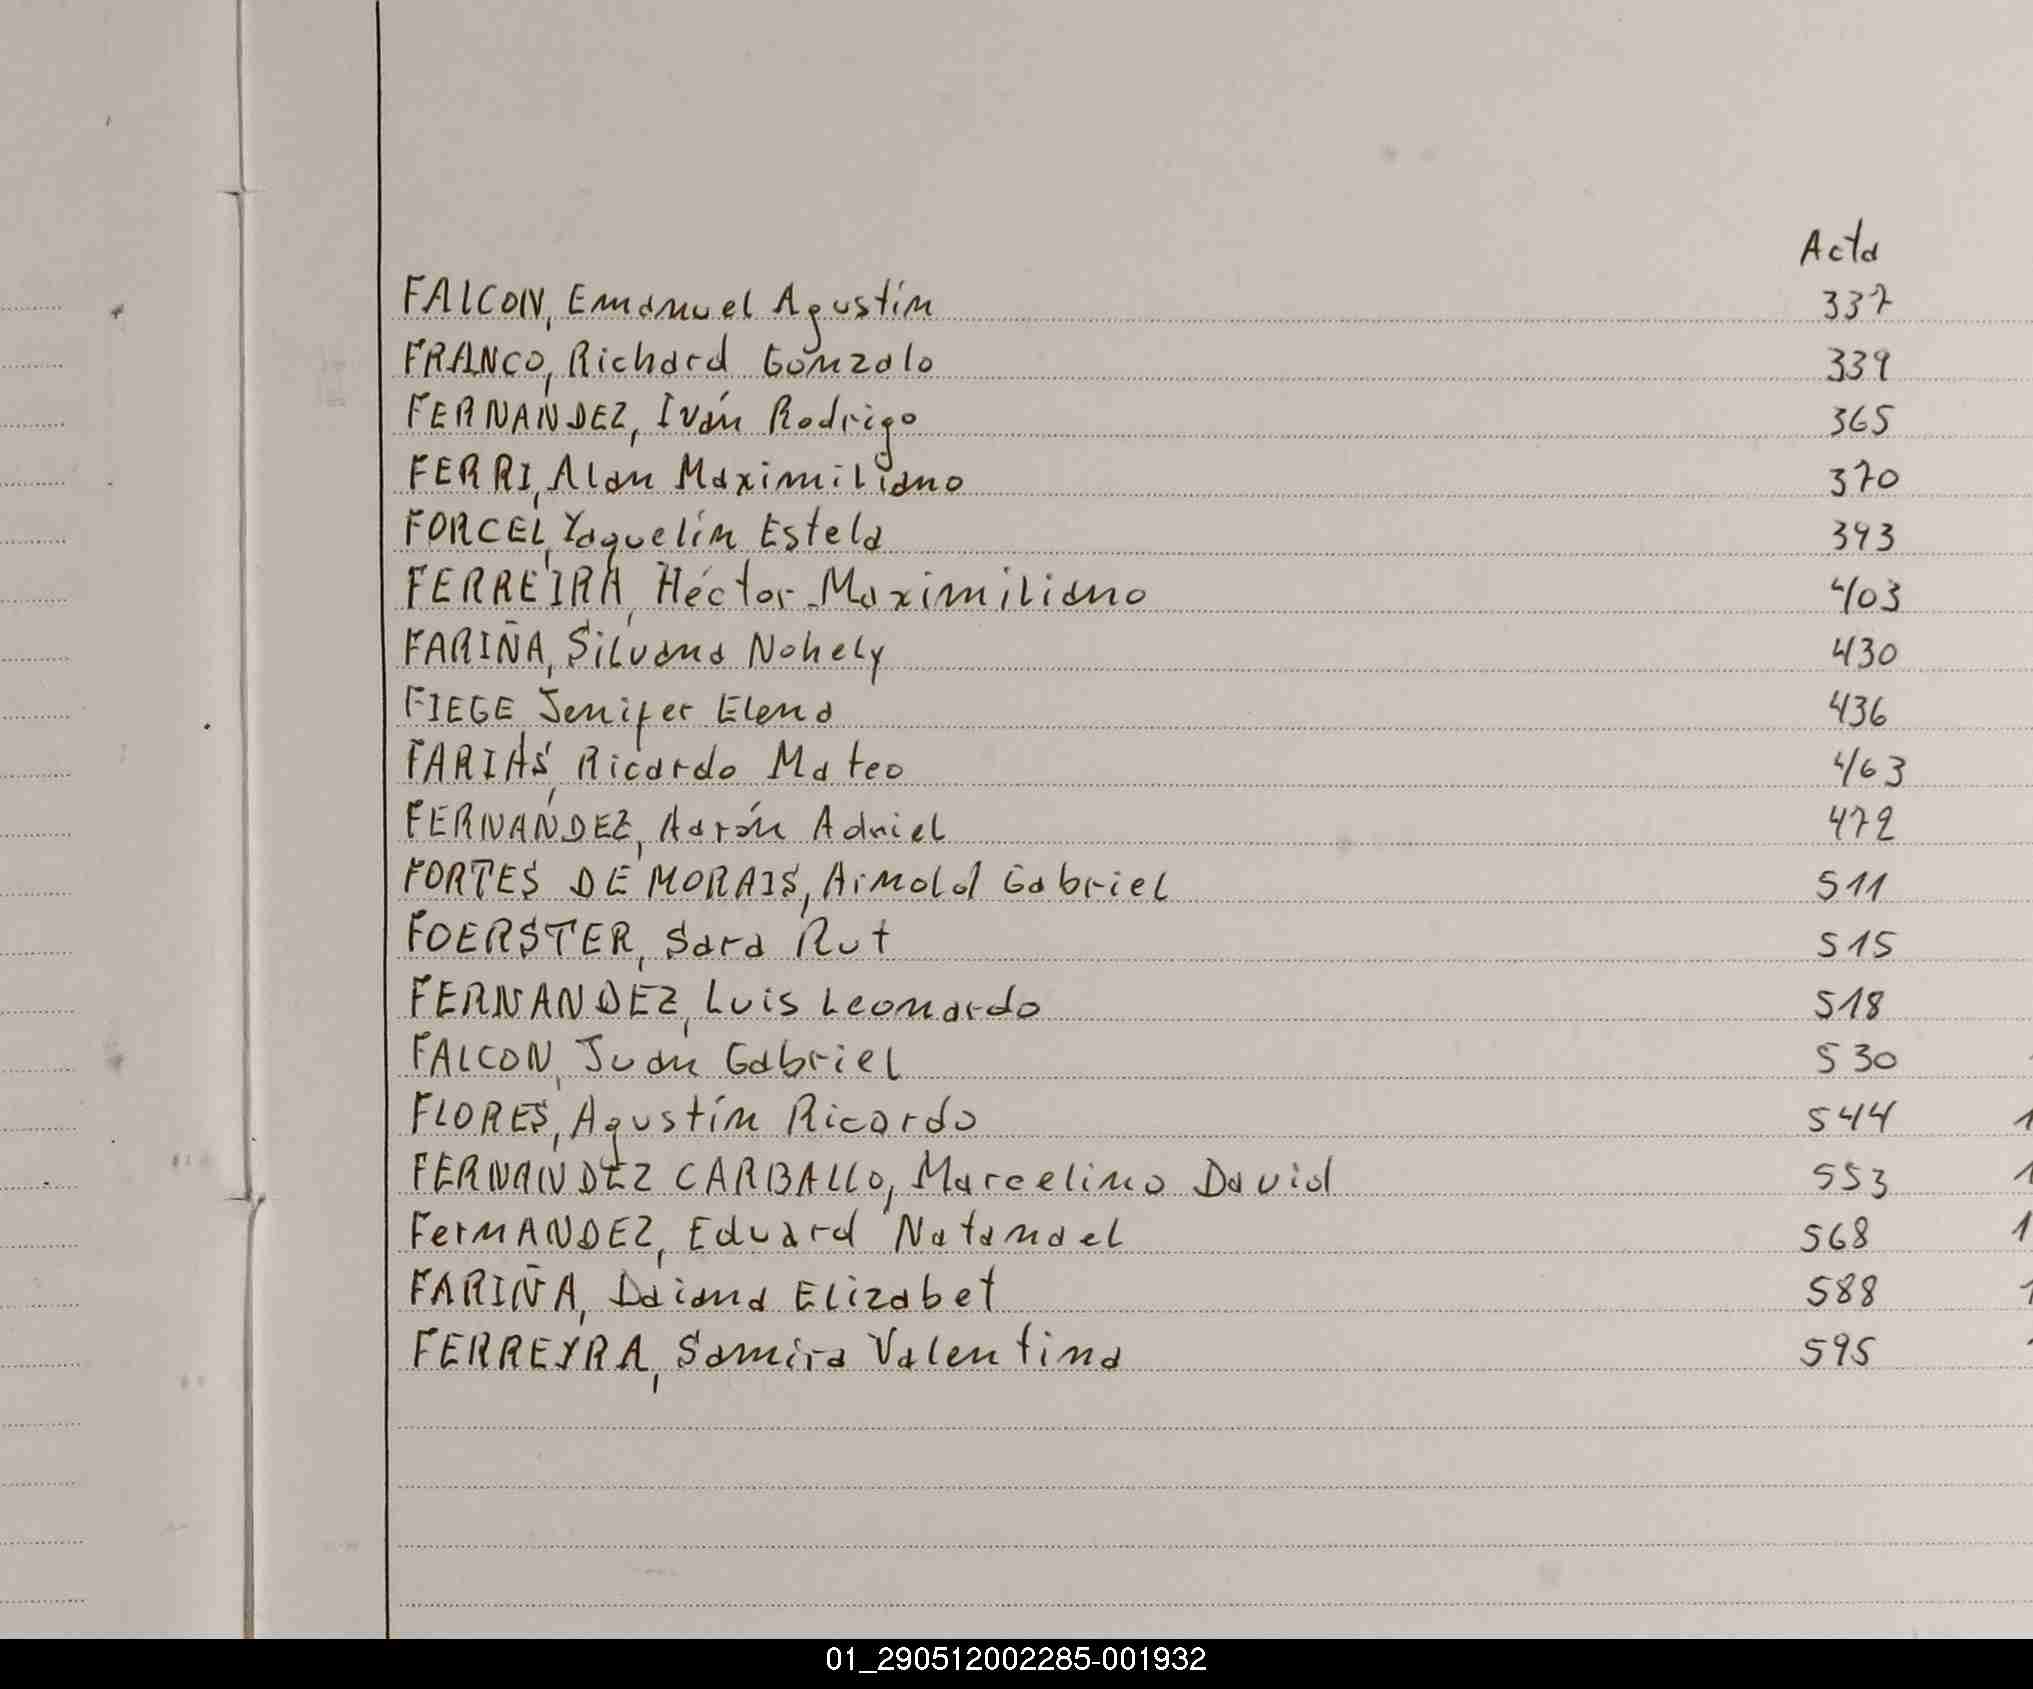 Acta
FALCON, Emanuel Agustín 337
FRANCO, Richard Gonzalo 339
FERNANDEZ, Iván Rodrigo 365
FERRI, Alan Maximiliano 370
FORCEL, Yaquelin Estela 393
FERREIRA, Héctor Maximiliano 403
FARIÑA, Silvana Nohely 430
FIEGE Jenifer Elena 436
FARIAS, Ricardo Mateo 463
FERNÁNDEZ, Aarón Adriel 472
FORTES DE MORAIS, Arnold Gabriel 511
FOERSTER, Sara Rut 515
FERNANDEZ, Luis Leonardo 518
FALCON, Juan Gabriel 530
FLORES, Agustín Ricardo 544
FERNANDEZ CARBALLO, Marcelino David 553
FerNANDEZ, Eduard Natanael 568
FARIÑA, Daiana Elizabet 588
FERREYRA, Samira Valentina 595
01_290512002285-001932